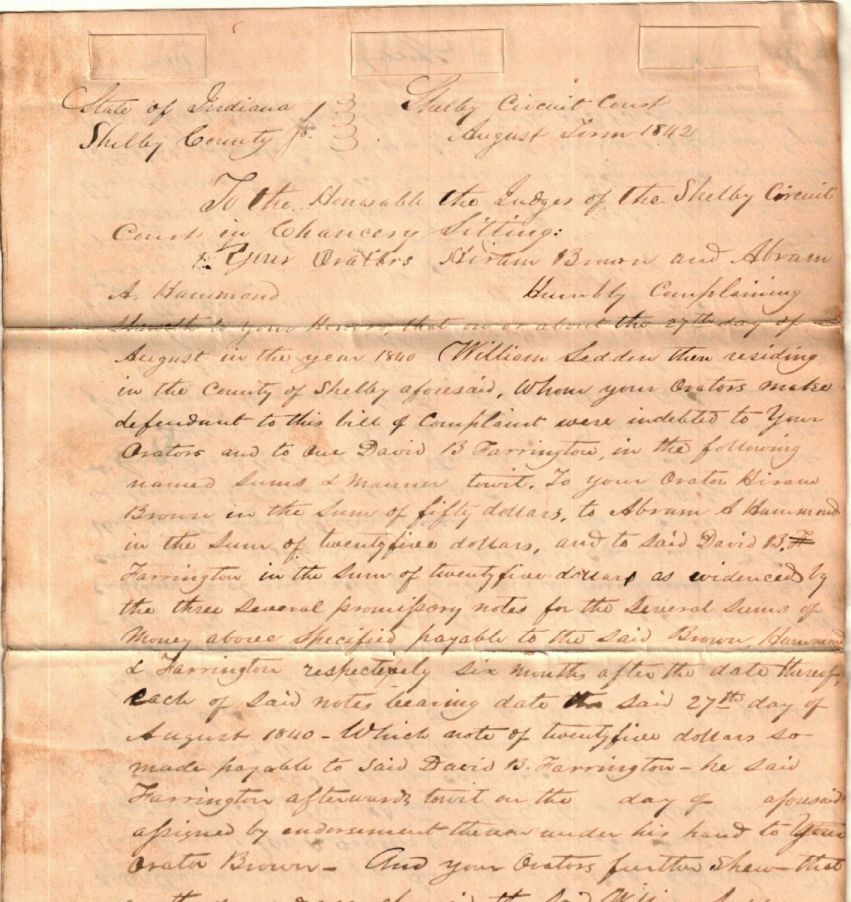 State of Indiana } Shelby Circuit Court
Shelby County ss. } August Term 1842
To the Honorable the Judges of the Shelby Circuit
Court in Chancery Sitting:
Your Orators Hiram Brown and Abram
A. Hammond Humbly Complaining
sheweth to your Honors, that on or about the 27th day of
August in the year 1840 William Sedden then residing
in the County of Shelby aforesaid, Whom your Orators make
defendant to this bill of Complaint were indebted to Your
Orators and to One David B Farrington, in the following
named Sums & Manner towit, To your Orator Hiram
Brown in the Sum of fifty dollars, to Abram A Hammond
in the Sum of twentyfive dollars, and to said David B.
Farrington in the Sum of twentyfive dollars as evidenced by
the three Several promissory notes for the Several Sums of
Money above Specified payable to the said Brown, Hammond
& Farrington respectively six months after the date thereof,
each of said notes bearing date the said 27th day of
August 1840 - Which note of twentyfive dollars so
made payable to said David B. Farrington - he said
Farrington afterwards towit on the day of aforesaid
assigned by endorsement thereon under his hand to Your
Orator Brown - And your Orators further shew that